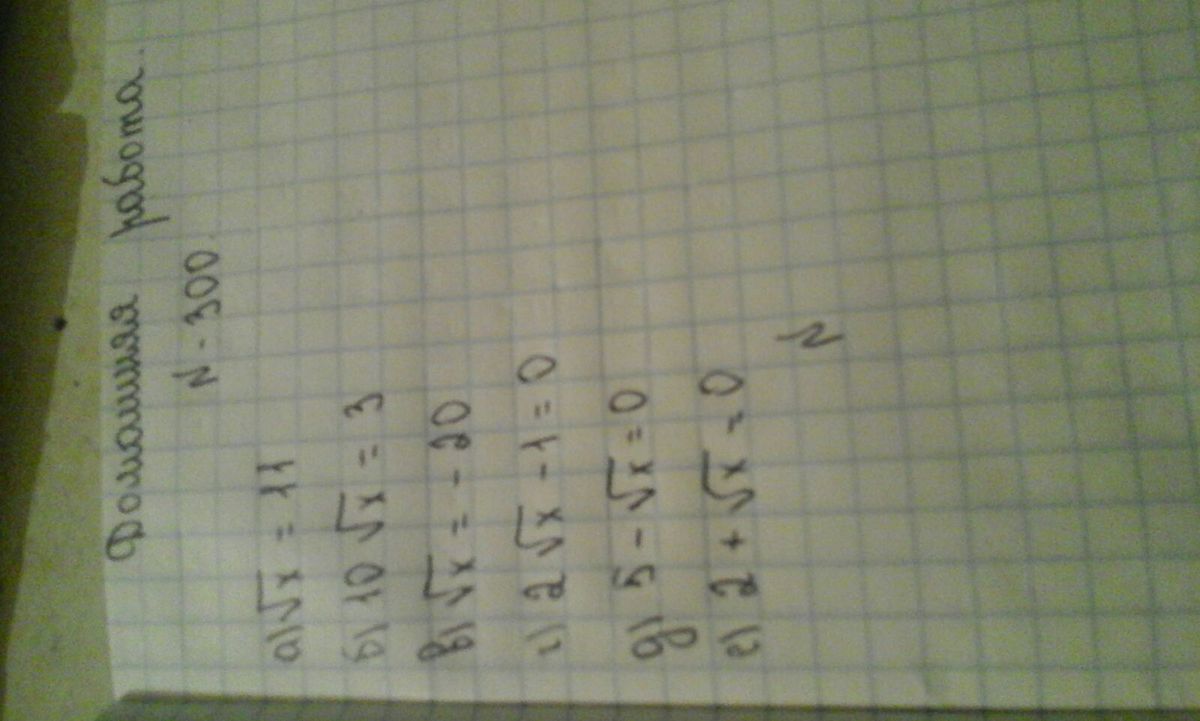 Домашняя работа.
N-300.
а) √x = 11
б) 10 √x = 3
в) √x = - 20
г) 2 √x - 1 = 0
д) 5 - √x = 0
е) 2 + √x = 0
N